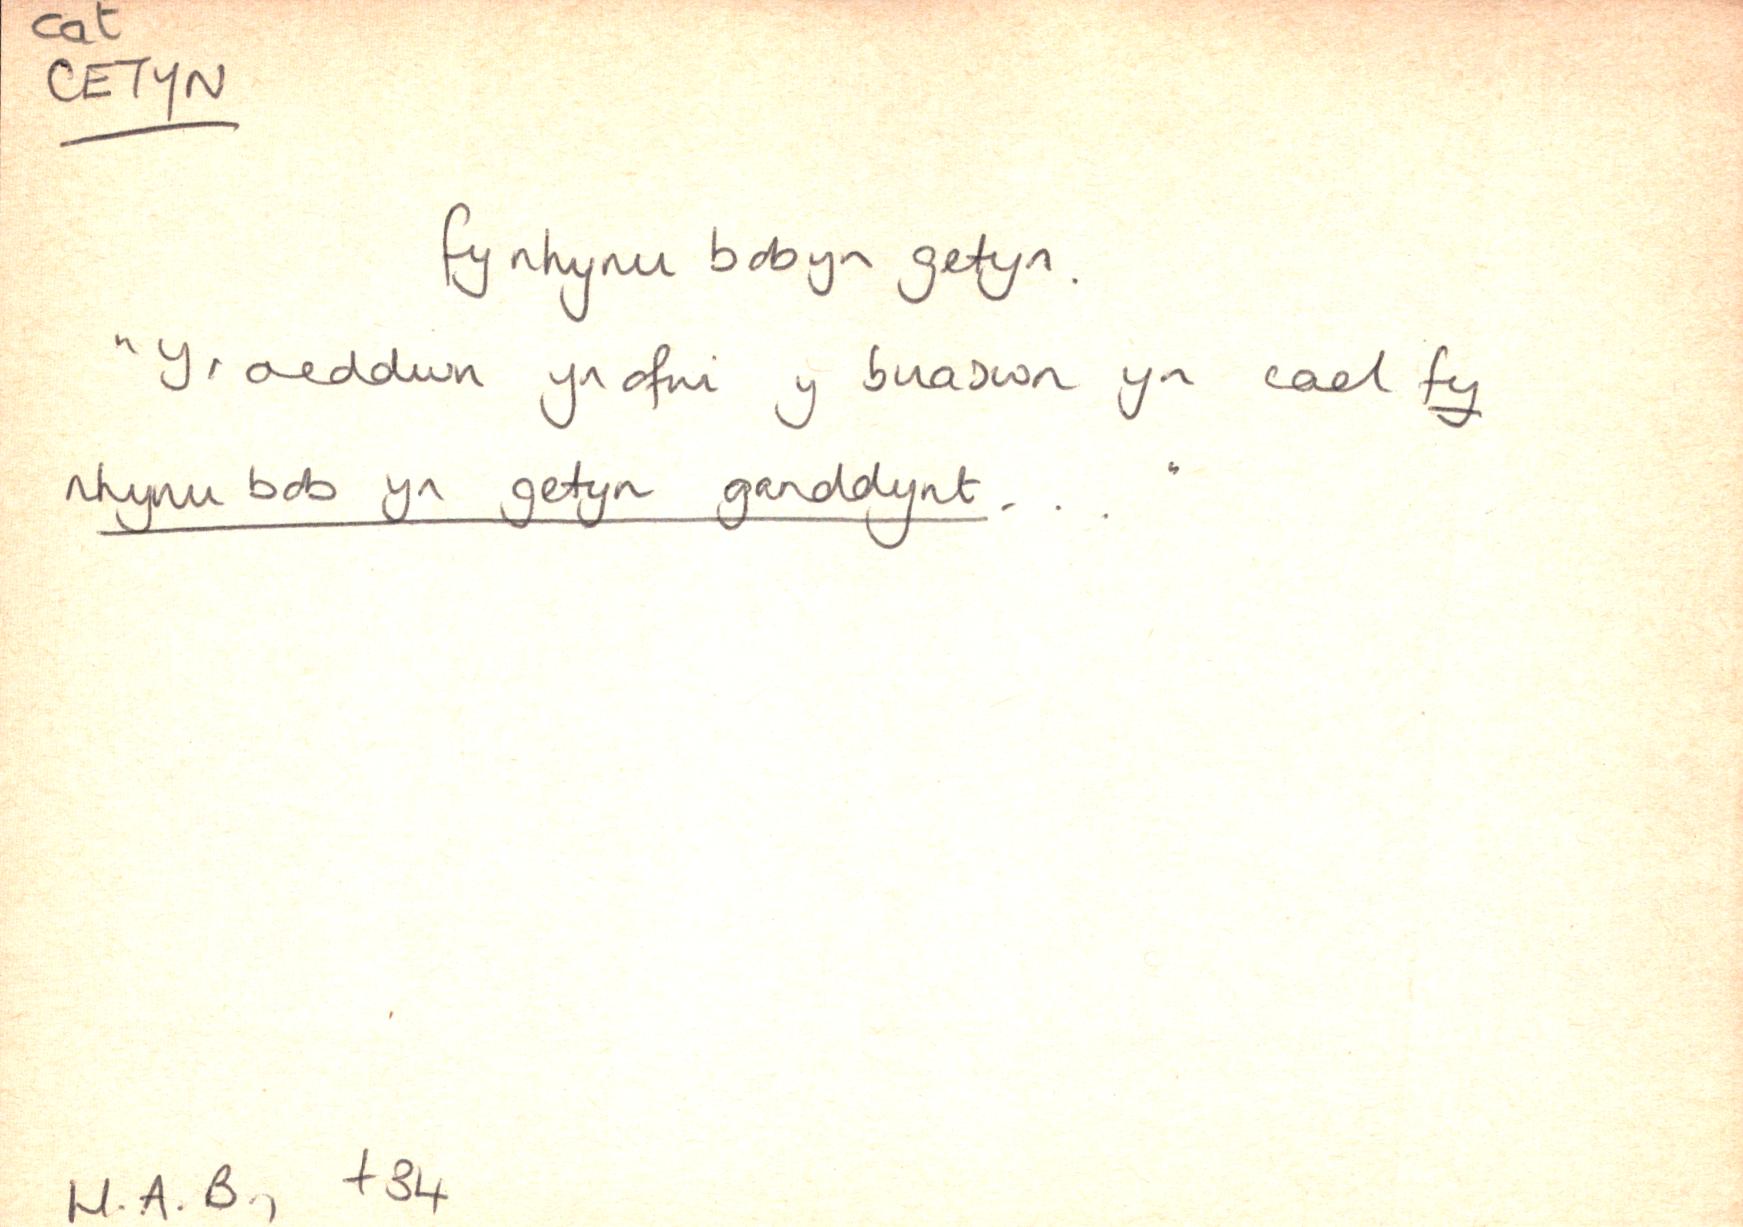 cat
CETYN
fy nhynu bob yn getyn.
"Yr oeddwn yn ofni y buaswn yn cael fy
nhynu bob yn getyn ganddynt. . . "
H.A.B., t34